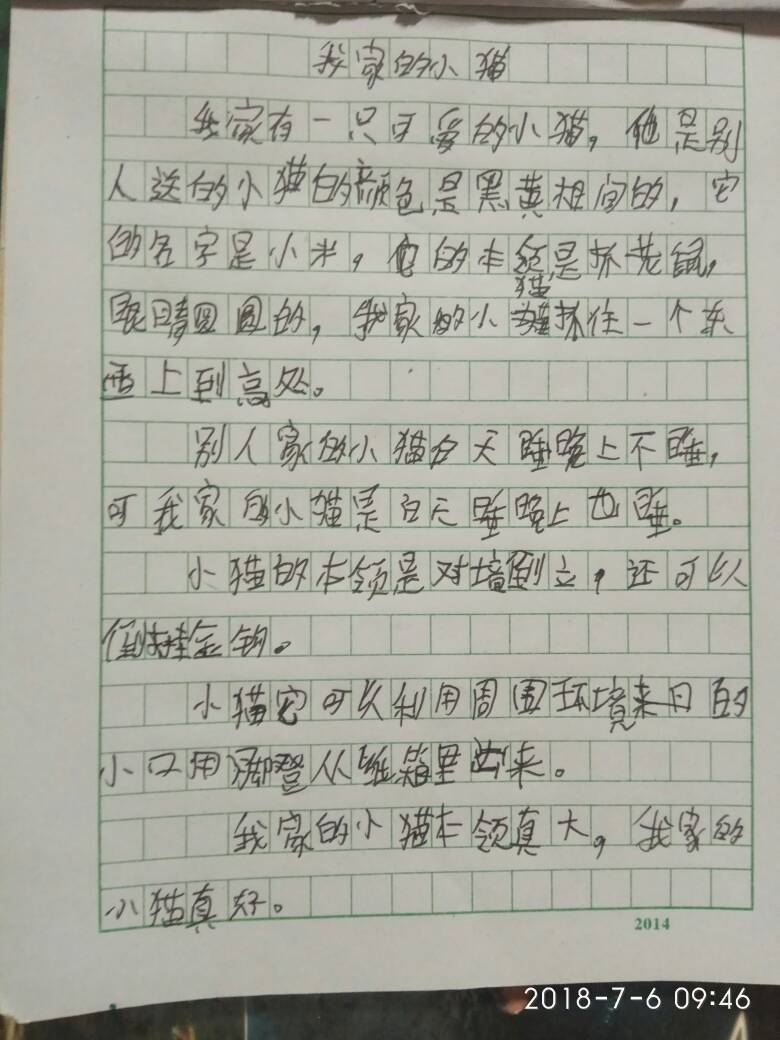 我家的小猫
我家有一只可爱的小猫，他是别
人送的小猫的颜色是黑黄相间的，它
的名字是小米，它的本领是抓老鼠，
猫
眼睛圆圆的，我家的小抓住一个东
西上到高处。
别人家的小猫白天睡晚上不睡，
可我家的小猫是白天睡晚上也睡。
小猫的本领是对墙倒立，还可以
倒挂金钩。
小猫它可以利用周围环境来日的
小口用脚登从纸箱里出来。
我家的小猫本领真大，我家的
小猫真好。
2014
2018-7-6 09:46